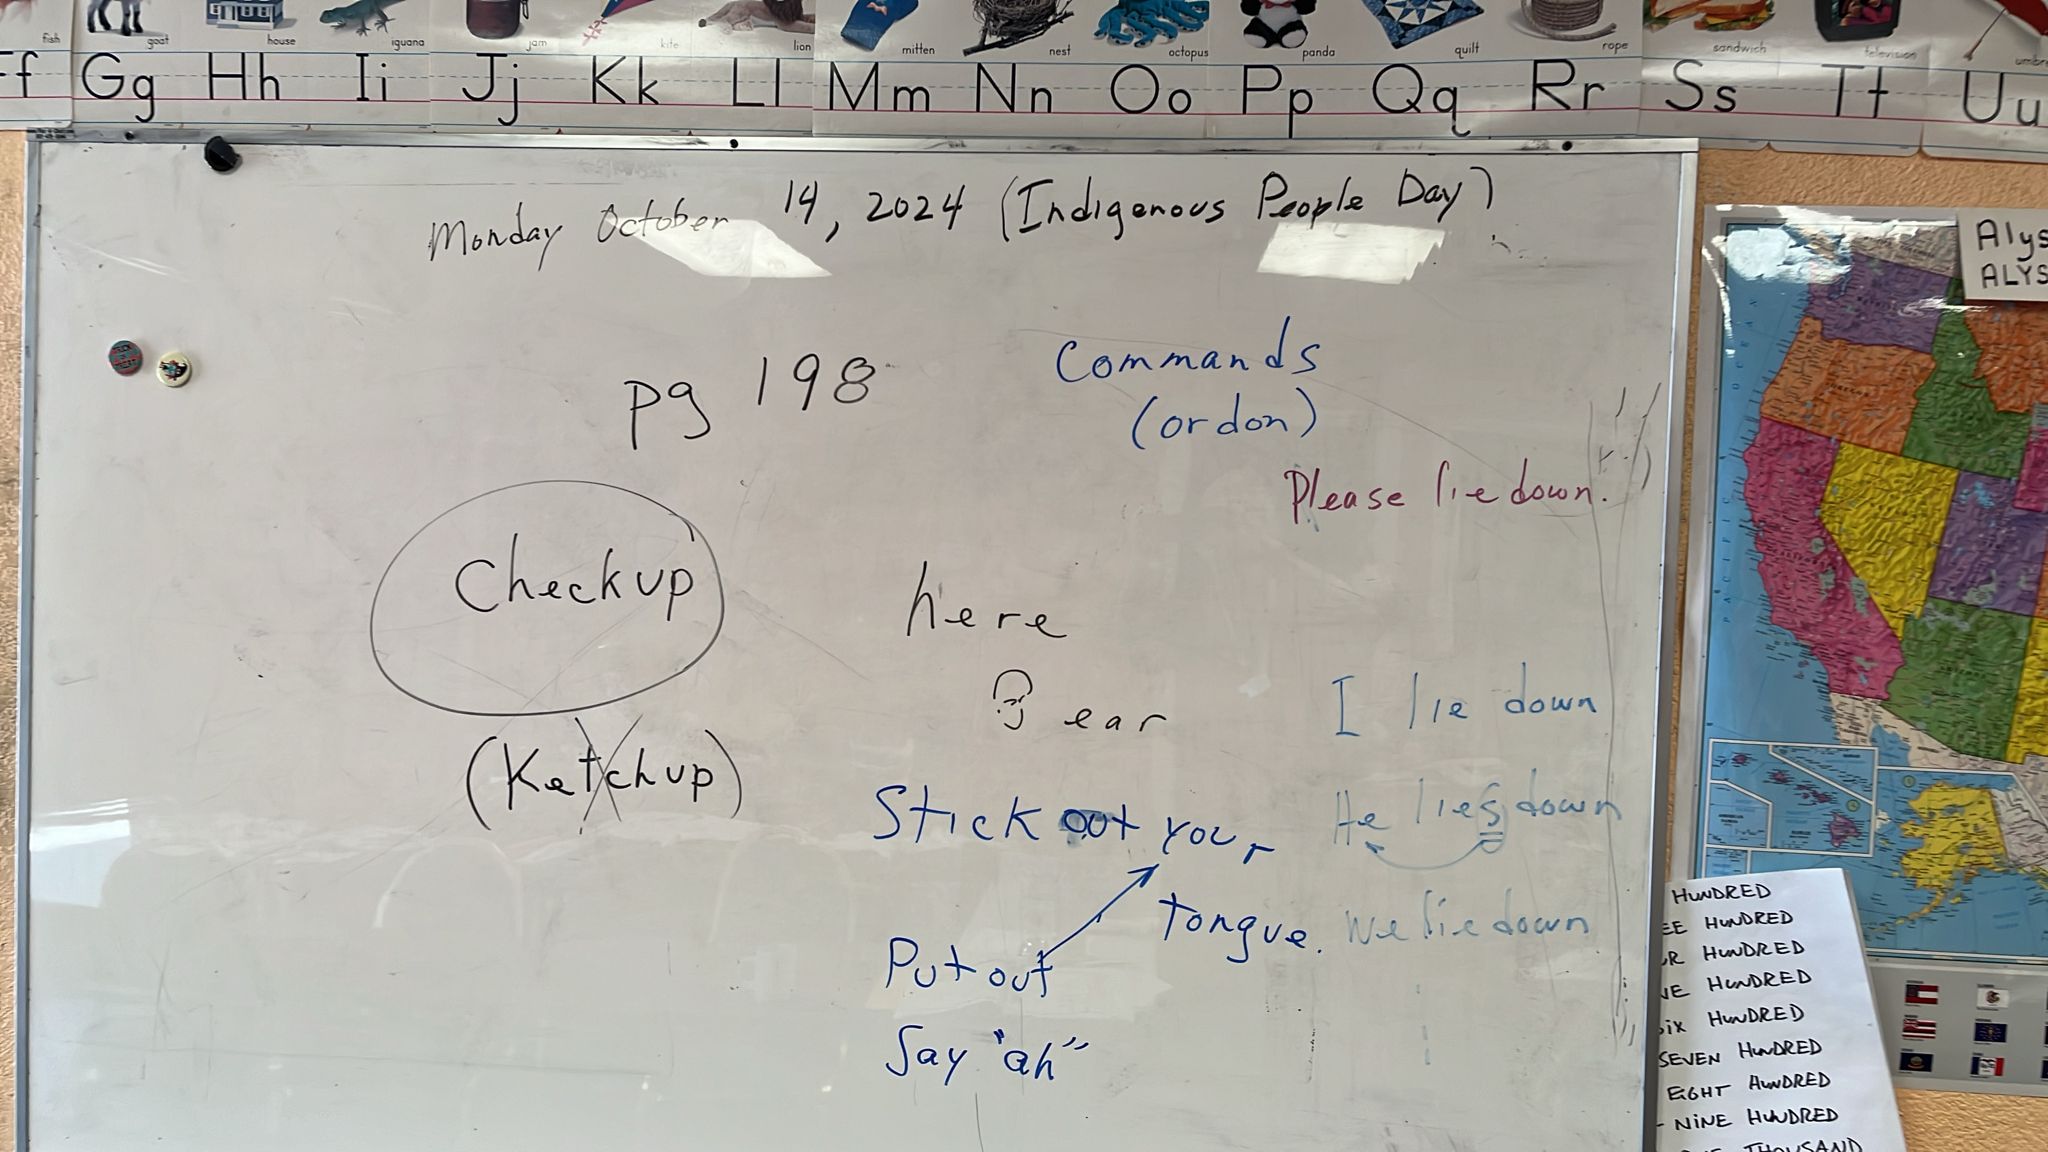 fish goat house iguana jam kite lion mitten nest octopus panda quilt rope sandwich television
Ff Gg Hh Ii Jj Kk Ll Mm Nn Oo Pp Qq Rr Ss Tt Uu
Monday October 14, 2024 (Indigenous People Day)
pg 198
Commands
(ordon)
Please lie down.
Checkup
(Ketchup)
here
ear
Stick out your
tongue.
Put out
Say "ah"
I lie down
He lies down
We lie down
Alys
ALYS
HUNDRED
EE HUNDRED
UR HUNDRED
VE HUNDRED
SIX HUNDRED
SEVEN HUNDRED
EIGHT HUNDRED
- NINE HUNDRED
THOUSAND
PACIFIC OCEAN